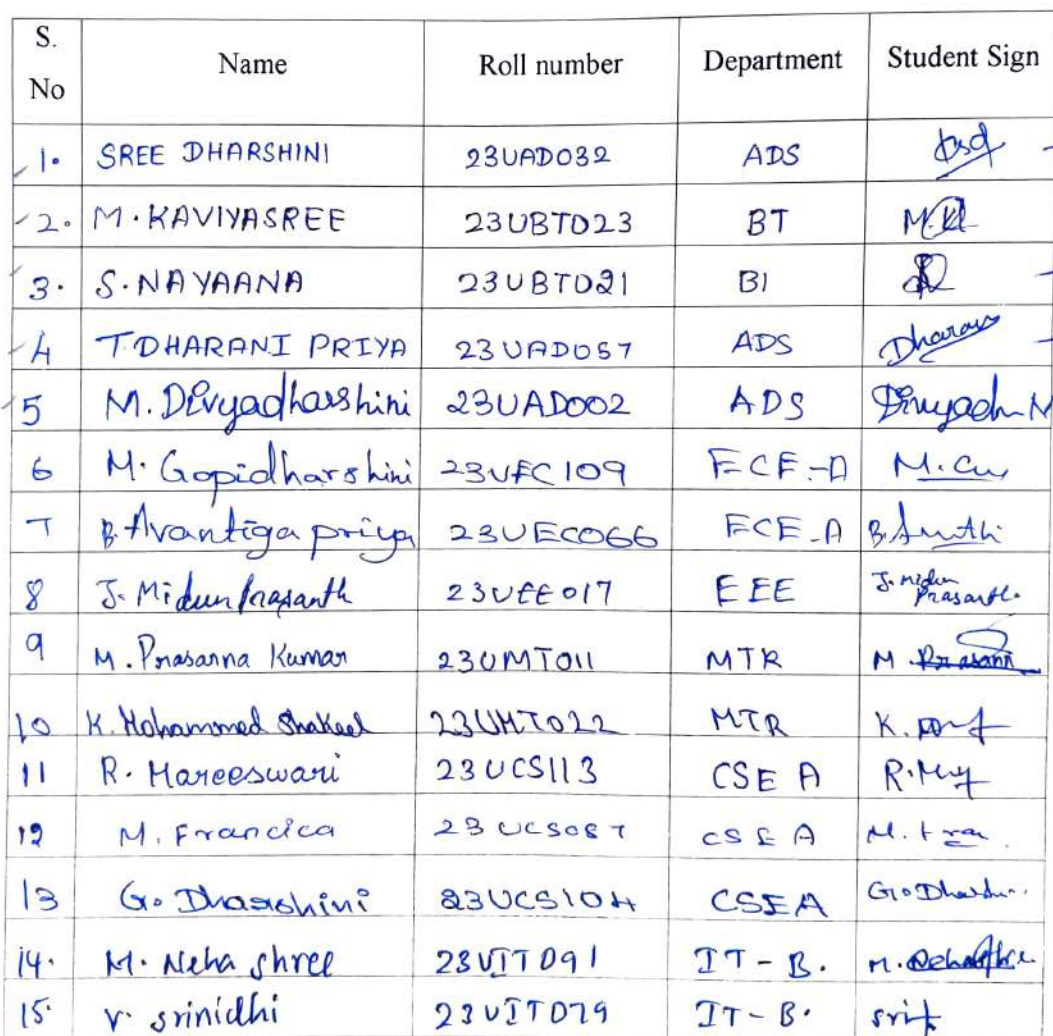 S. No Name Roll number Department Student Sign
1. SREE DHARSHINI 23UAD032 ADS
2. M. KAVIYASREE 23UBT023 BT
3. S. NAYAANA 23UBT021 BI
4 T. DHARANI PRIYA 23UAD057 ADS Dharani
5 M. Divyadharshini 23UAD002 ADS
6 M. Gopidharshini 23UEC109 ECE-A
7 B. Avantiga priya 23UEC066 ECE-A
8 J. Midun Prasanth 23UEE017 EEE J. Midun Prasanth.
9 M. Prasanna Kumar 23UMT011 MTR
10 K. Mohammed Shakeel 23UMT022 MTR
11 R. Mareeswari 23UCS113 CSE A
12 M. Francica 23UCS087 CSE A
13 G. Dharshini 23UCS104 CSEA
14. M. Neha shree 23UIT091 IT-B.
15. V. srinidhi 23UIT079 IT-B.